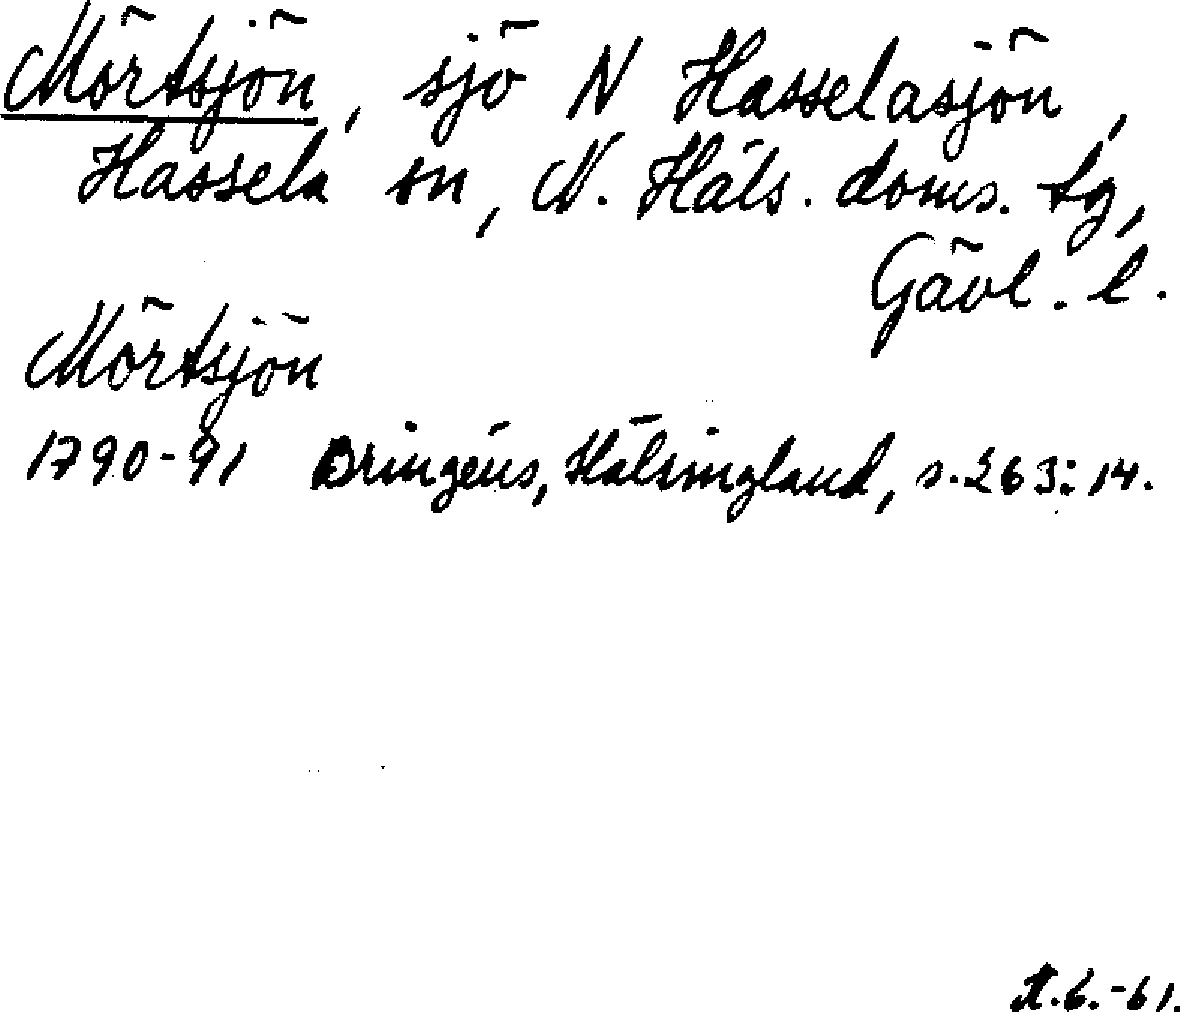 Mörtsjön, sjö N Hasselasjön,
Hassela sn, N. Häls. doms. tg,
Gävl. l.
Mörtsjön
1790-91 Bringéus, Hälsingland, s. 263:14.
6.-61.